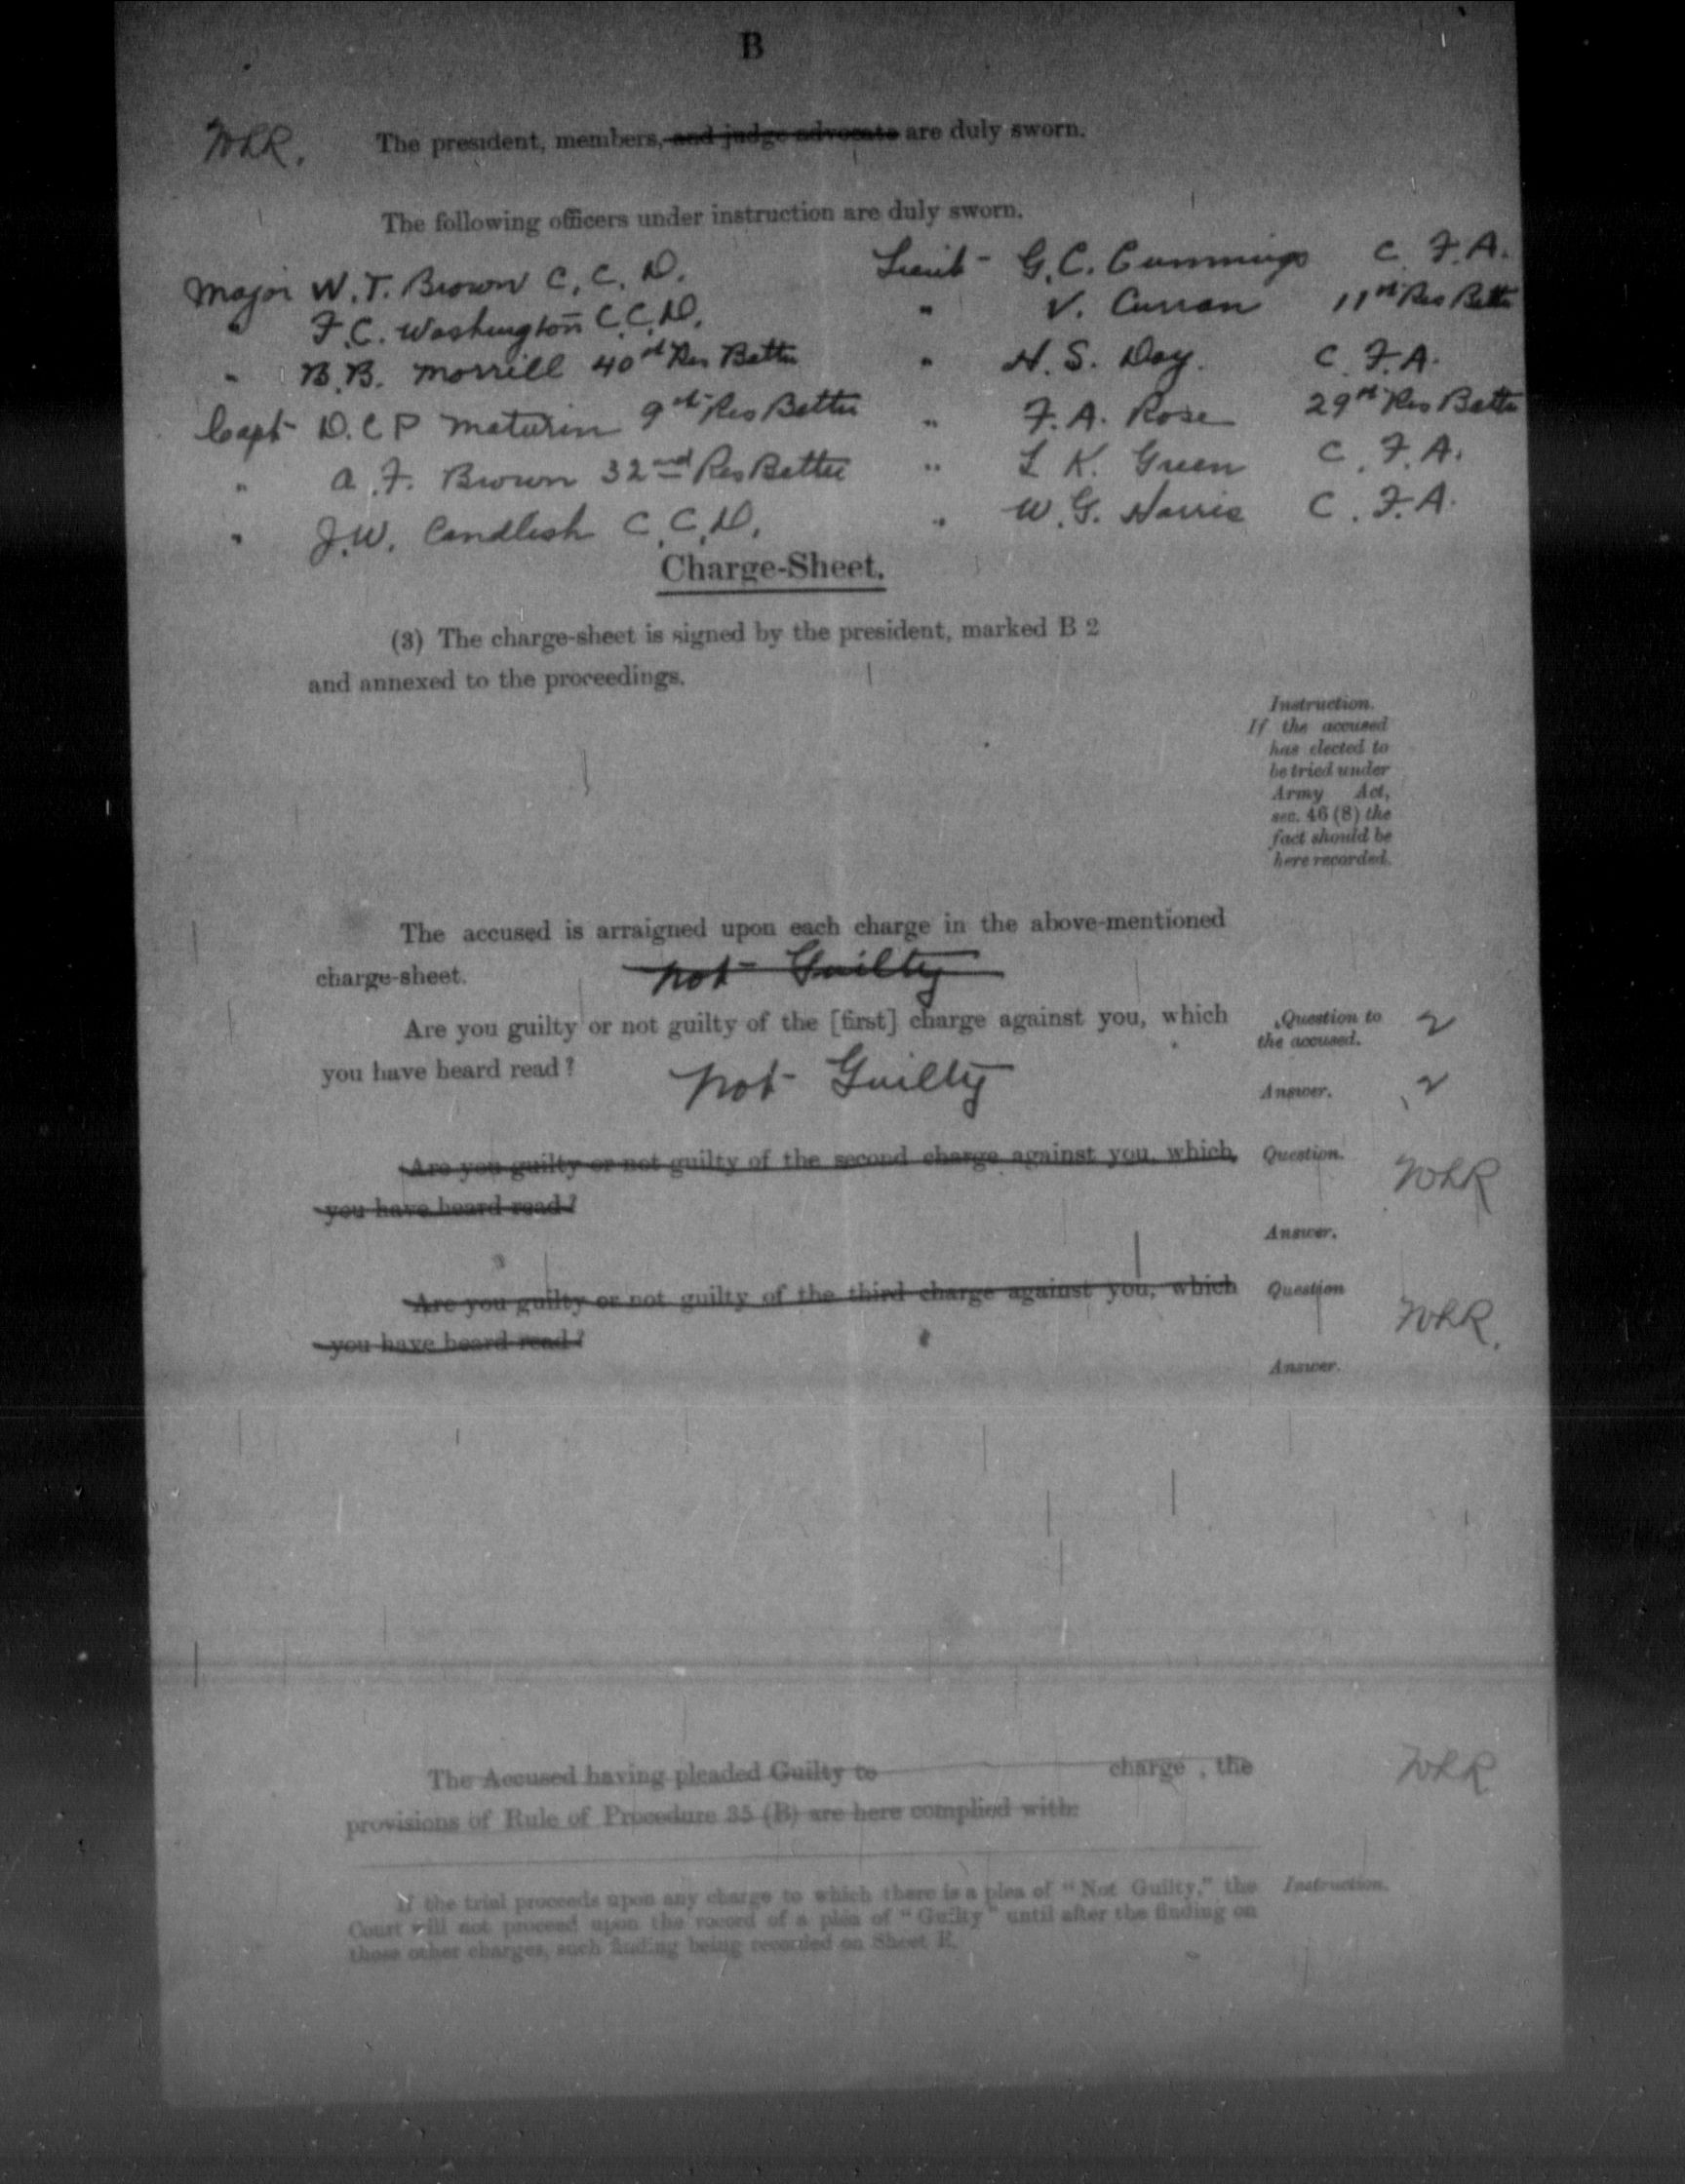 B
WLR. The president, members, and judge advocate are duly sworn.
The following officers under instruction are duly sworn.
Major W. T. Brown C. C. D.
" F. C. Washington C. C. D.
" B. B. Morrill 40th Res Battn
Capt D. C P Maturin 9th Res Battn
" A. F. Brown 32nd Res Battn
" J. W. Candlish C. C. D.
Lieut - G. C. Cummings C. F. A.
" V. Curran 11th Res Battn
" H. S. Day. C. F. A.
" F. A. Rose 29th Res Battn
" L K. Green C. F. A.
" W. G. Harris C. F. A.
Charge-Sheet.
(3) The charge-sheet is signed by the president, marked B 2
and annexed to the proceedings.
Instruction.
If the accused
has elected to
be tried under
Army Act,
sec. 46 (8) the
fact should be
here recorded.
The accused is arraigned upon each charge in the above-mentioned
charge-sheet. Not Guilty
Are you guilty or not guilty of the [first] charge against you, which
you have heard read?
Question to
the accused.
Not Guilty
Answer.
Are you guilty or not guilty of the second charge against you, which
you have heard read?
Question. WLR
Answer.
Are you guilty or not guilty of the third charge against you, which
you have heard read?
Question WLR.
Answer.
The Accused having pleaded Guilty to charge , the WLR
provisions of Rule of Procedure 35 (B) are here complied with.
If the trial proceeds upon any charge to which there is a plea of "Not Guilty," the Instruction.
Court will not proceed upon the record of a plea of "Guilty" until after the finding on
those other charges, such finding being recorded on Sheet E.